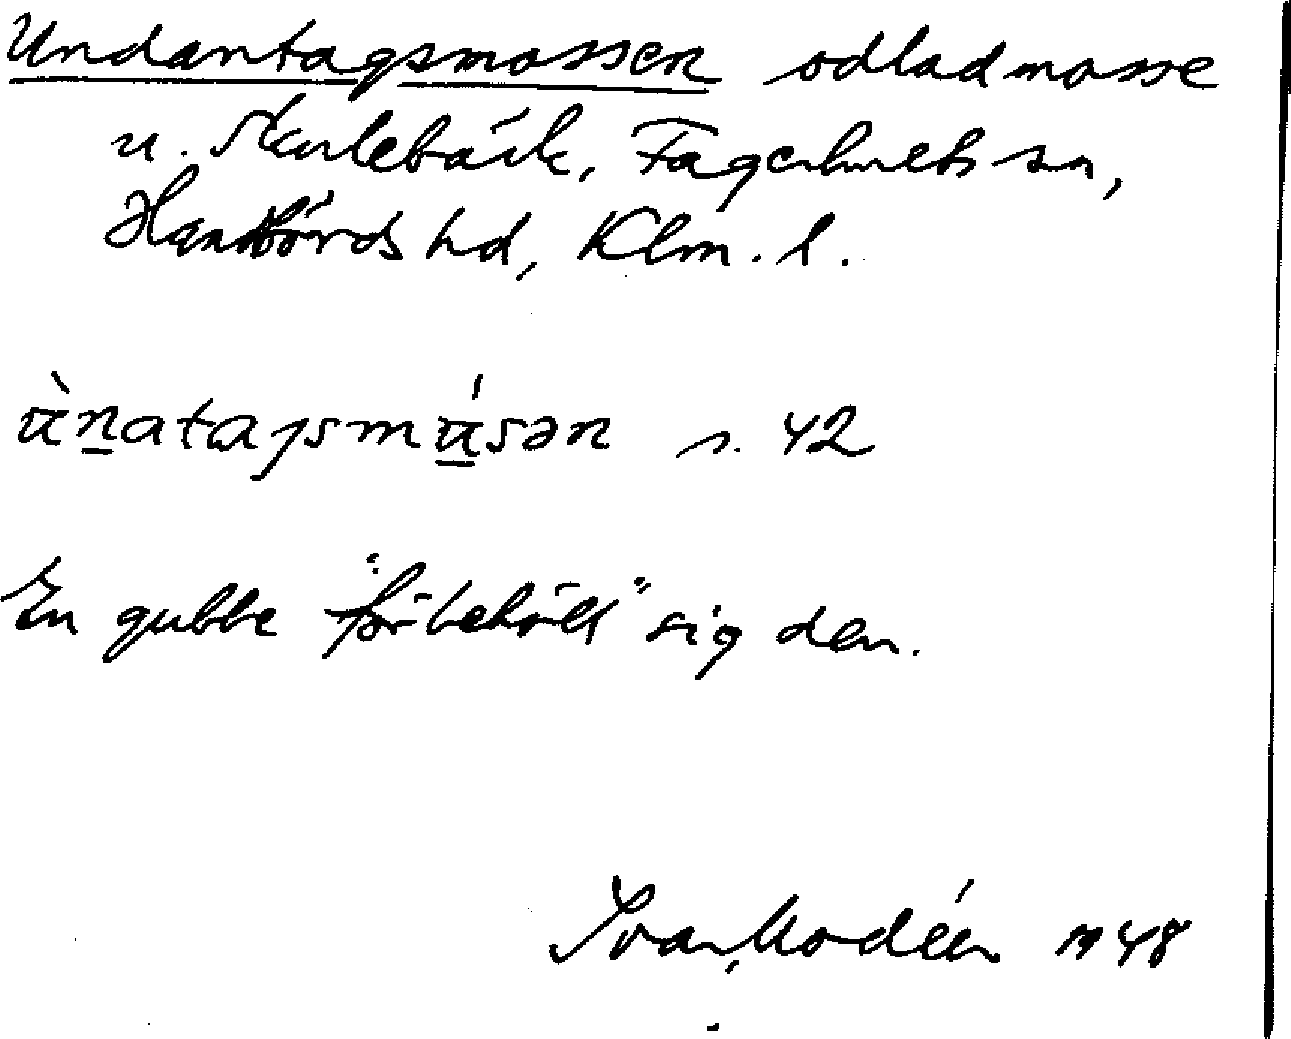 Undantagsmossen odlad mosse
u. Skulebäck, Fagerhults sn,
Handbörds hd, Klm. l.
ùnatagsmúsən s. 42
En gubbe "förbehöll" sig den.
Ivar Modéer 1948